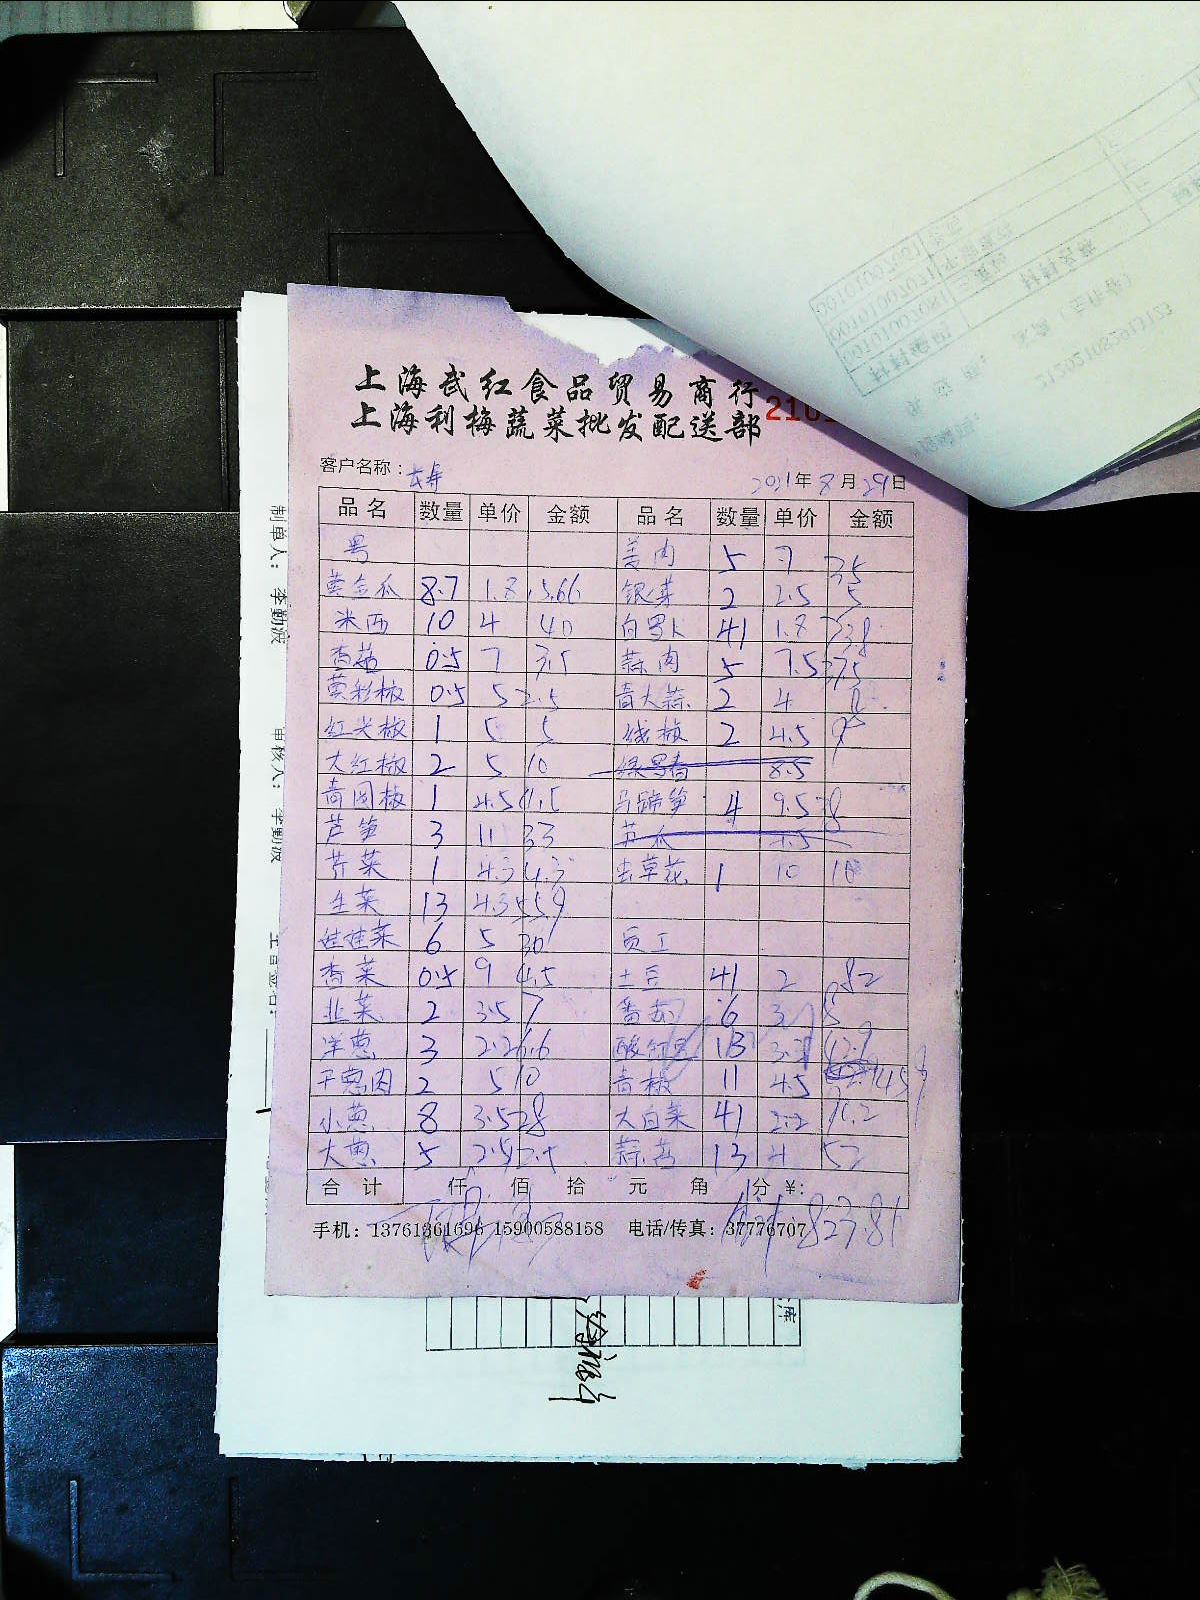 上海武红食品贸易商行
上海利梅蔬菜批发配送部
客户名称：
2021年8月29日
品名 数量 单价 金额 品名 数量 单价 金额
姜肉 5 7 35
黄金瓜 8.7 1.8 15.66 银芽 2 2.5 5
米西 10 4 40 白罗卜 41 1.8 73.8
香菇 0.5 7 3.5 蒜肉 5 7.5 37.5
黄彩椒 0.5 5 2.5 青大蒜 2 4 8
红尖椒 1 5 5 线椒 2 4.5 9
大红椒 2 5 10 8.5
青圆椒 1 4.5 4.5 马蹄笋 4 9.5 38
芦笋 3 11 33
芹菜 1 4.3 4.3 虫草花 1 10 10
生菜 13 4.3 55.9
娃娃菜 6 5 30 员工
香菜 0.5 9 4.5 土豆 41 2 82
韭菜 2 3.5 7 番茄 6 3 18
洋葱 3 2.2 6.6 酸豇豆 13 3.3 42.9
干葱肉 2 5 10 青椒 11 4.5
小葱 8 3.5 28 大白菜 41 2.2 90.2
大葱 5 2.5 蒜苗 13 4 52
合计 仟 佰 拾 元 角 分 ¥: 823.86
手机：13761361696 15900588158 电话/传真：37776707
制单人：李勤波
审核人：李勤波